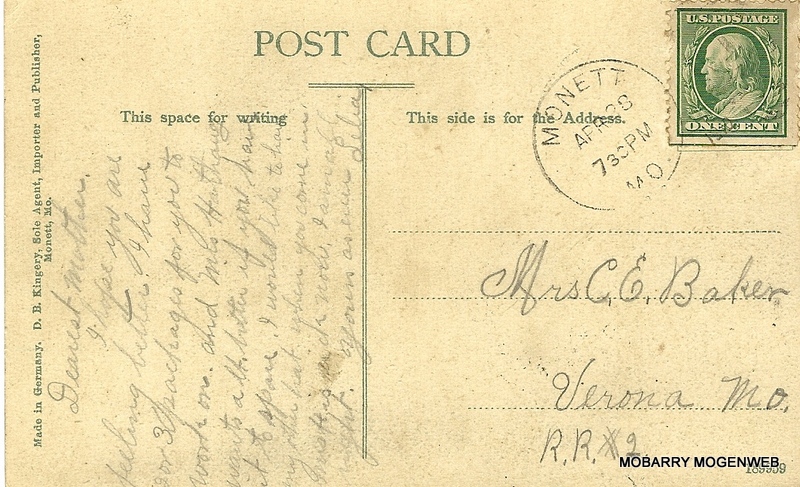 POST CARD
This space for writing
This side is for the Address.
U.S. POSTAGE
ONE CENT
MONETT
APR 28
730 PM
MO.
Mrs C. E. Baker
Verona Mo.
R.R. 2.
Dearest mother.
I hope you are
feeling better. I have
for 3 packages for you to
work on. and Mrs
wants a lb. butter if you have
it to spare. I would like to have
my hat when you come in.
night. Yours as ever Lelia
Made in Germany. D. B. Kingery, Sole Agent, Importer and Publisher,
Monett, Mo.
MOBARRY MOGENWEB
189959